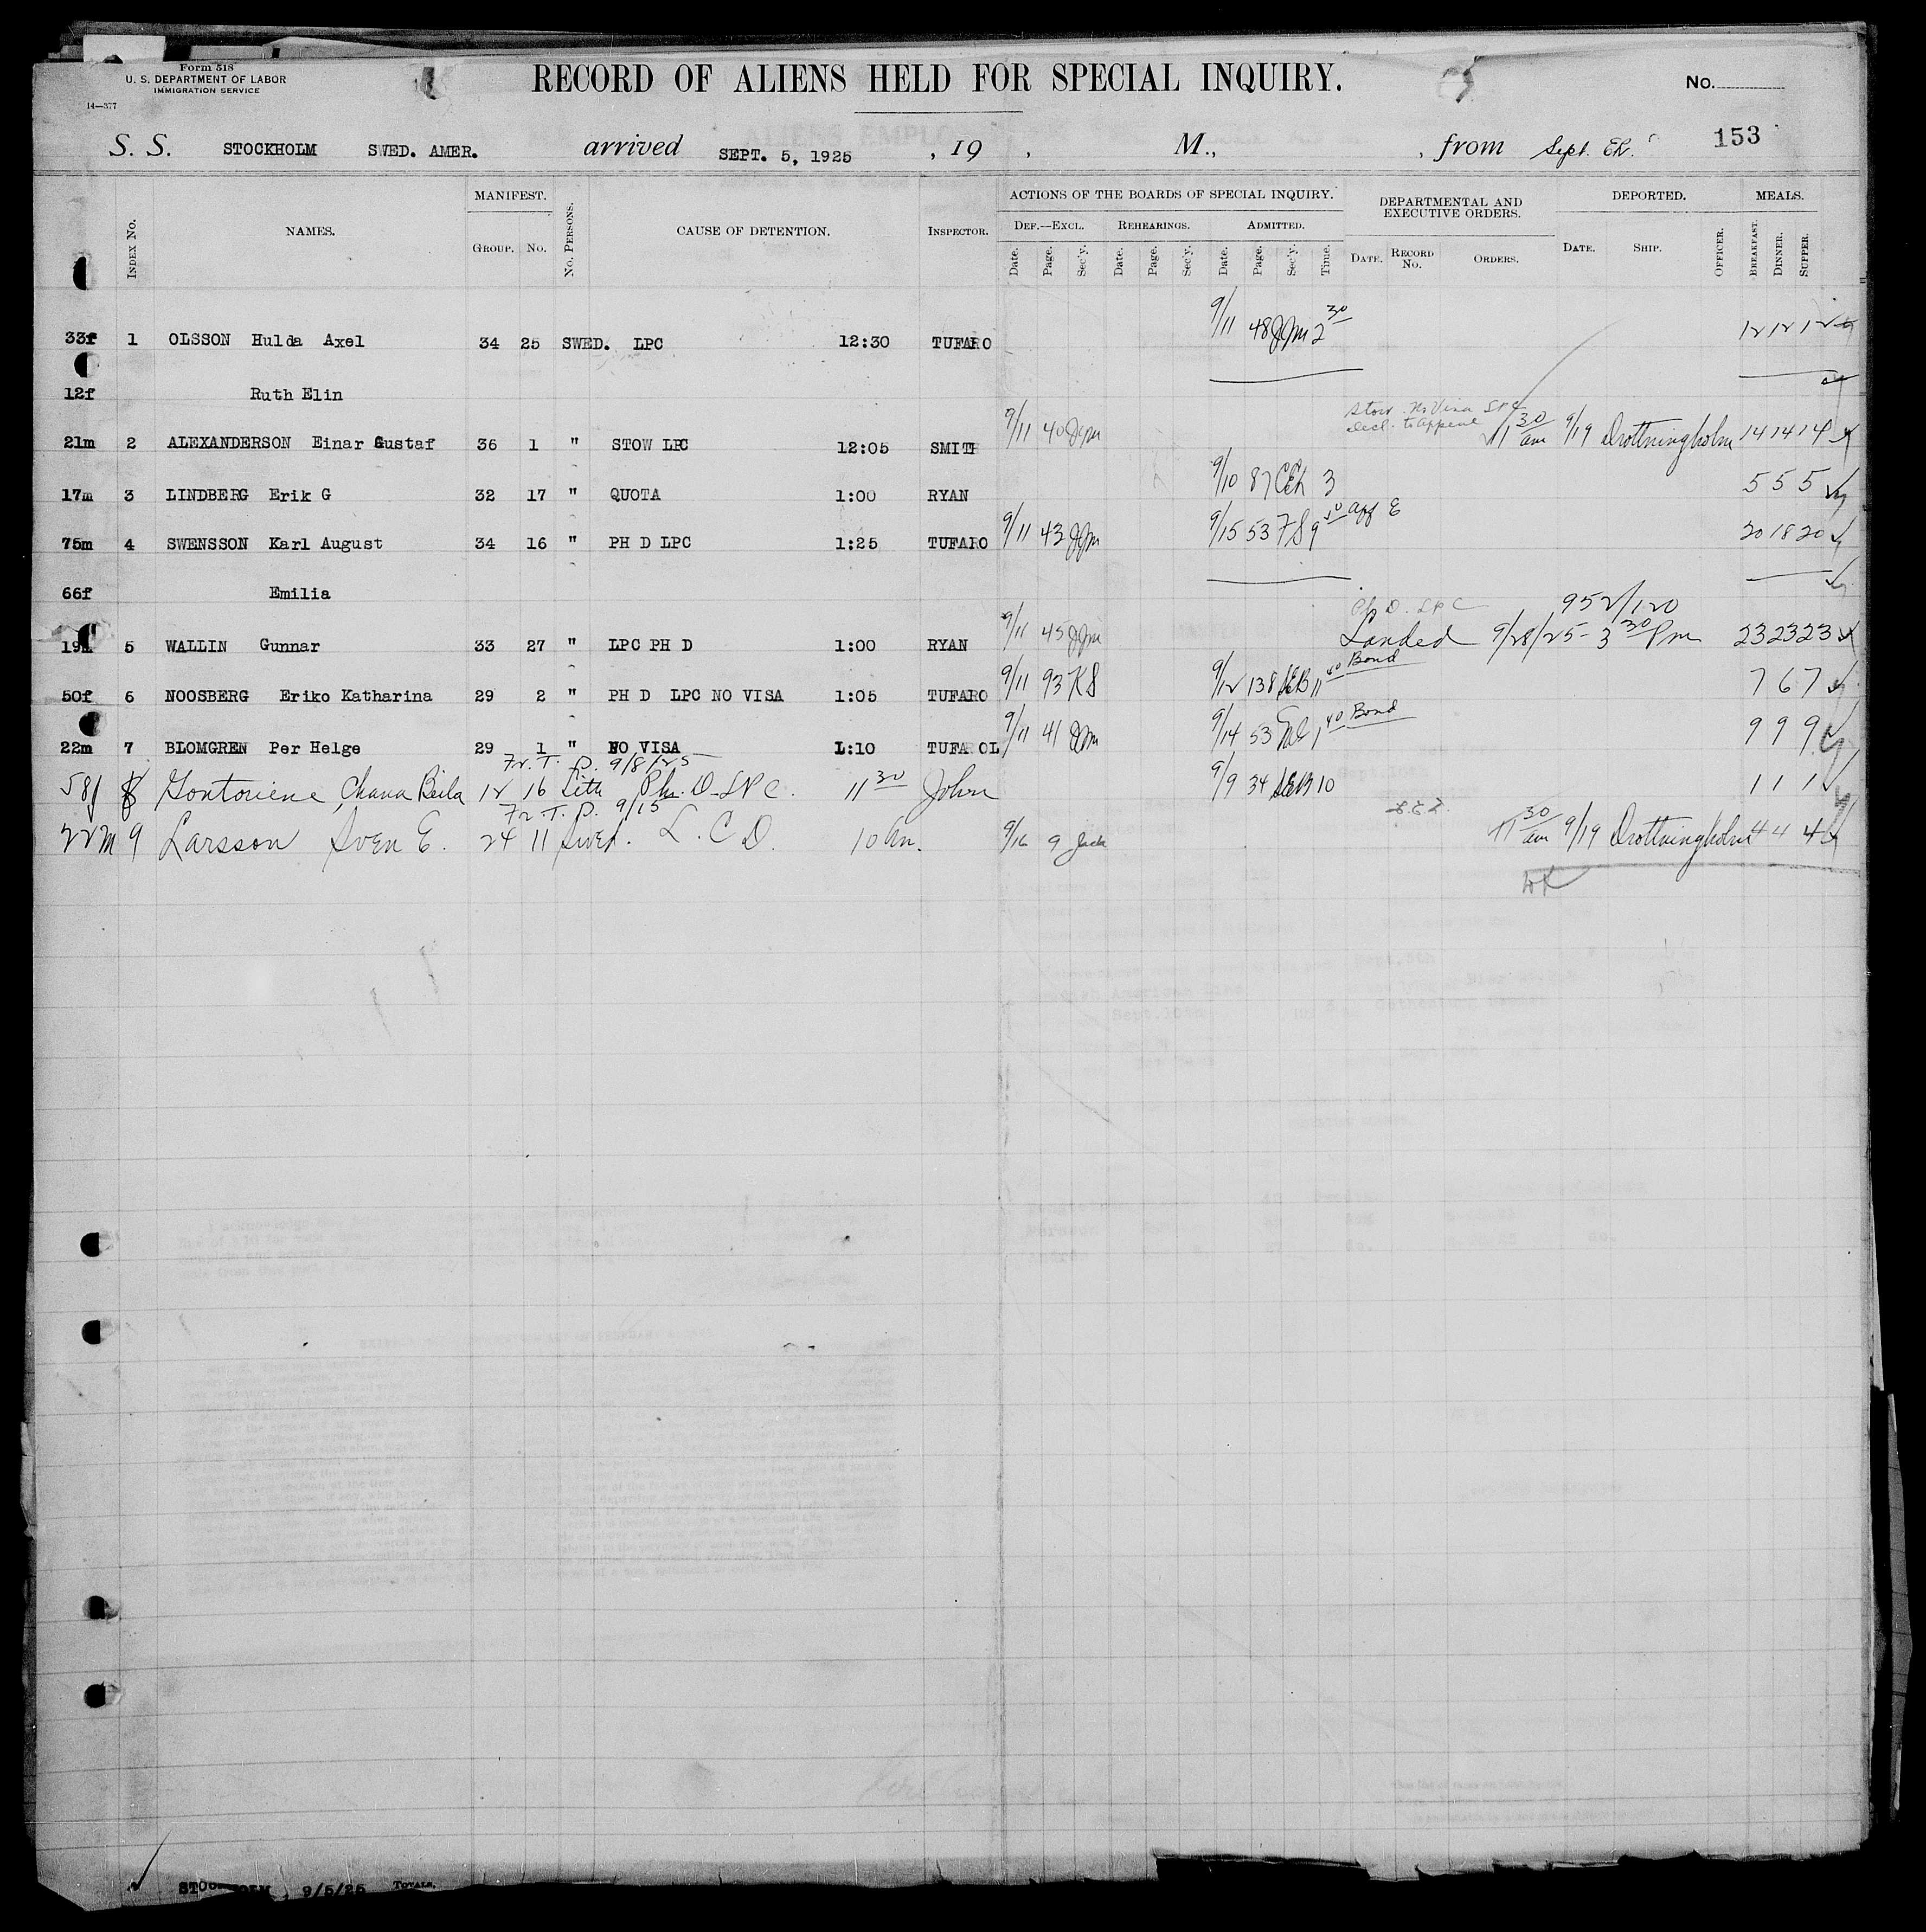 Form 518
U. S. DEPARTMENT OF LABOR
IMMIGRATION SERVICE
14—377
RECORD OF ALIENS HELD FOR SPECIAL INQUIRY.
No.
S. S. STOCKHOLM SWED. AMER. arrived SEPT. 5, 1925 , 19 , M., , from Sept. 153
INDEX No. NAMES. MANIFEST. GROUP. NO. No. PERSONS. CAUSE OF DETENTION. INSPECTOR. ACTIONS OF THE BOARDS OF SPECIAL INQUIRY. DEF.—EXCL. Date. Page. Sec'y. REHEARINGS. Date. Page. Sec'y. ADMITTED. Date. Page. Sec'y. Time. DEPARTMENTAL AND EXECUTIVE ORDERS. DATE. RECORD NO. ORDERS. DEPORTED. DATE. SHIP. OFFICER. MEALS. BREAKFAST. DINNER. SUPPER.
33f 1 OLSSON Hulda Axel 34 25 SWED. LPC 12:30 TUFARO 9/11 48 JJM 2 30 12 12 12
12f Ruth Elin
Stow. No Visa LPC
Decl. to appeal
21m 2 ALEXANDERSON Einar Gustaf 36 1 " STOW LPC 12:05 SMITH 9/11 40 JJM 11 30 am 9/19 Drottningholm 14 14 14
17m 3 LINDBERG Erik G 32 17 " QUOTA 1:00 RYAN 9/10 87 CEh 3 5 5 5
75m 4 SWENSSON Karl August 34 16 " PH D LPC 1:25 TUFARO 9/11 43 JJM 9/15 53 FS 9 app E 20 18 20
66f Emilia
Ph D. LPC 952/120
19 5 WALLIN Gunnar 33 27 " LPC PH D 1:00 RYAN 9/11 45 JJM Landed 9/28/25 - 3 30 Pm 23 23 23
50f 6 NOOSBERG Eriko Katharina 29 2 " PH D LPC NO VISA 1:05 TUFARO 9/11 93 KS 9/12 138 11 Bond 7 6 7
22m 7 BLOMGREN Per Helge 29 1 " NO VISA 1:10 TUFAROL 9/11 41 JJM 9/14 53 1 40 Bond 9 9 9
Fr. T. D. 9/8/25
58f 8 Gontoriene, Chana Beila 12 16 Lith Ph. D-LPC. 11 30 John 9/9 34 10 1 1 1
Fr. T. D. 9/15
22m 9 Larsson Sven E. 24 11 Swed. L. C D. 10 An. 9/16 9 Jack 11 30 am 9/19 Drottningholm 4 4 4
STOCKHOLM 9/5/25 TOTALS.